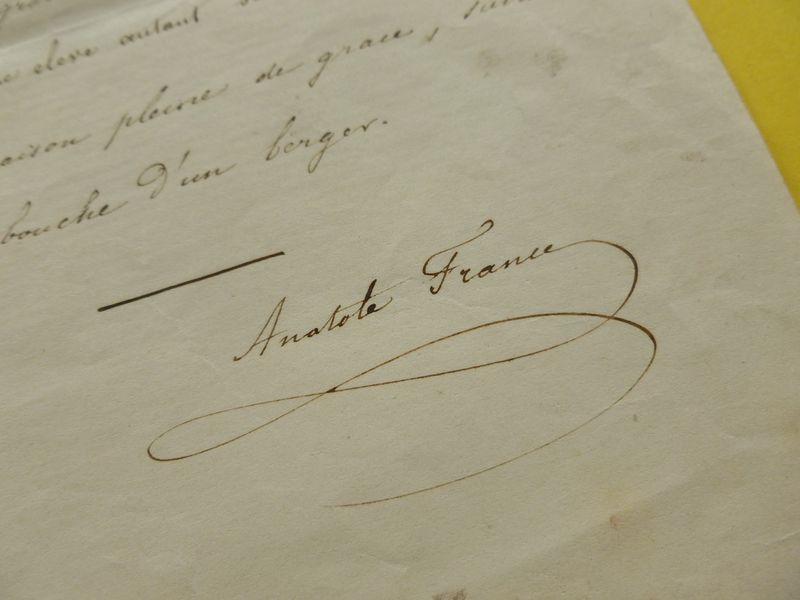 eleve autant
pleine de grace,
bouche d'un berger.
Anatole France